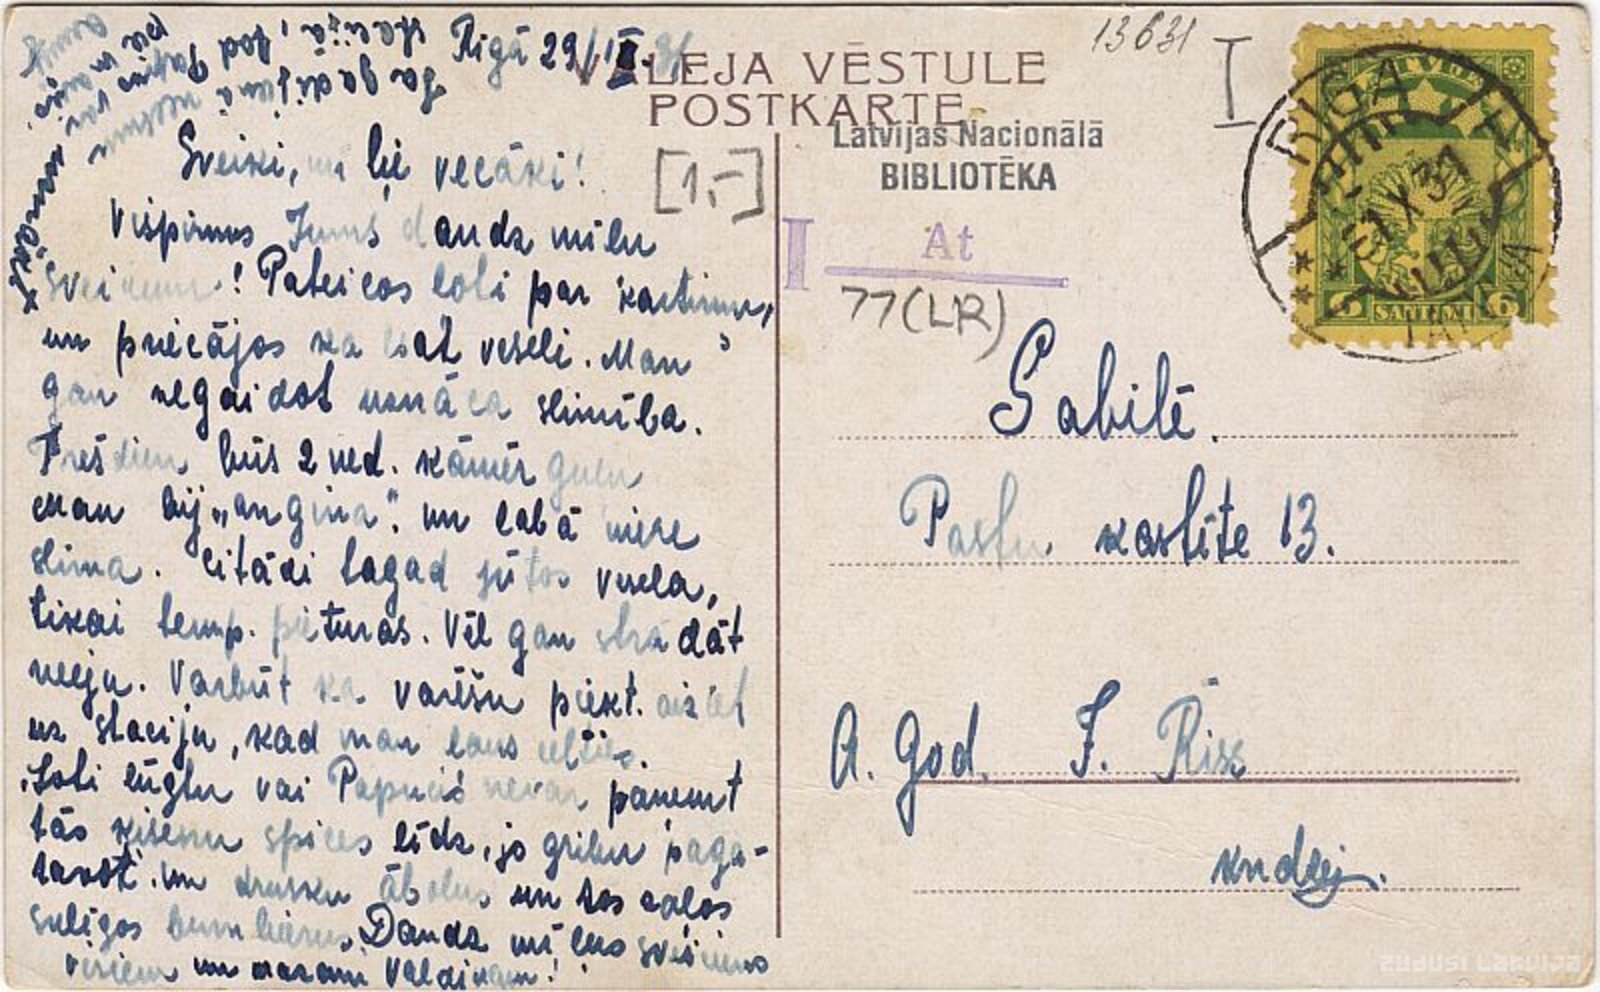 Rīgā 29/IX 31.
13631
VALEJA VĒSTULE
POSTKARTE
Latvijas Nacionālā
BIBLIOTĒKA
[1,-]
I At
77(LR)
RIGA
1 X 31
LATVIJA
6 SANTIMI 6
Sveiki, mīļie vecāki!
Vispirms Jums daudz mīļu
sveicienu! Pateicos ļoti par kartiņu,
un priecājos ka esat veseli. Man
gan negaidot uznāca slimība.
Trešdien būs 2 ned. kāmēr guļu
Man bij „angina". un labā niere
slima. Citādi tagad jūtos vesela,
tikai temp. pieturas. Vēl gan strādāt
neeju. Varbūt ka varēšu piekt. aiziet
uz staciju, kad man ļaus celties.
Ļoti lūgtu vai Papucis nevar paņemt
tās kisenu spices līdz, jo gribu paga-
tavot. un drusku ābolus un tos zaļos
sulīgos bumbierus. Daudz mīļus sveicienus
visiem un mazam Valdiņam!
Ja gadijumā
stacijā, tad
Sabilē.
Pastu kastīte 13.
A. God. F. Riss
kndzej.
zudusi Latvija